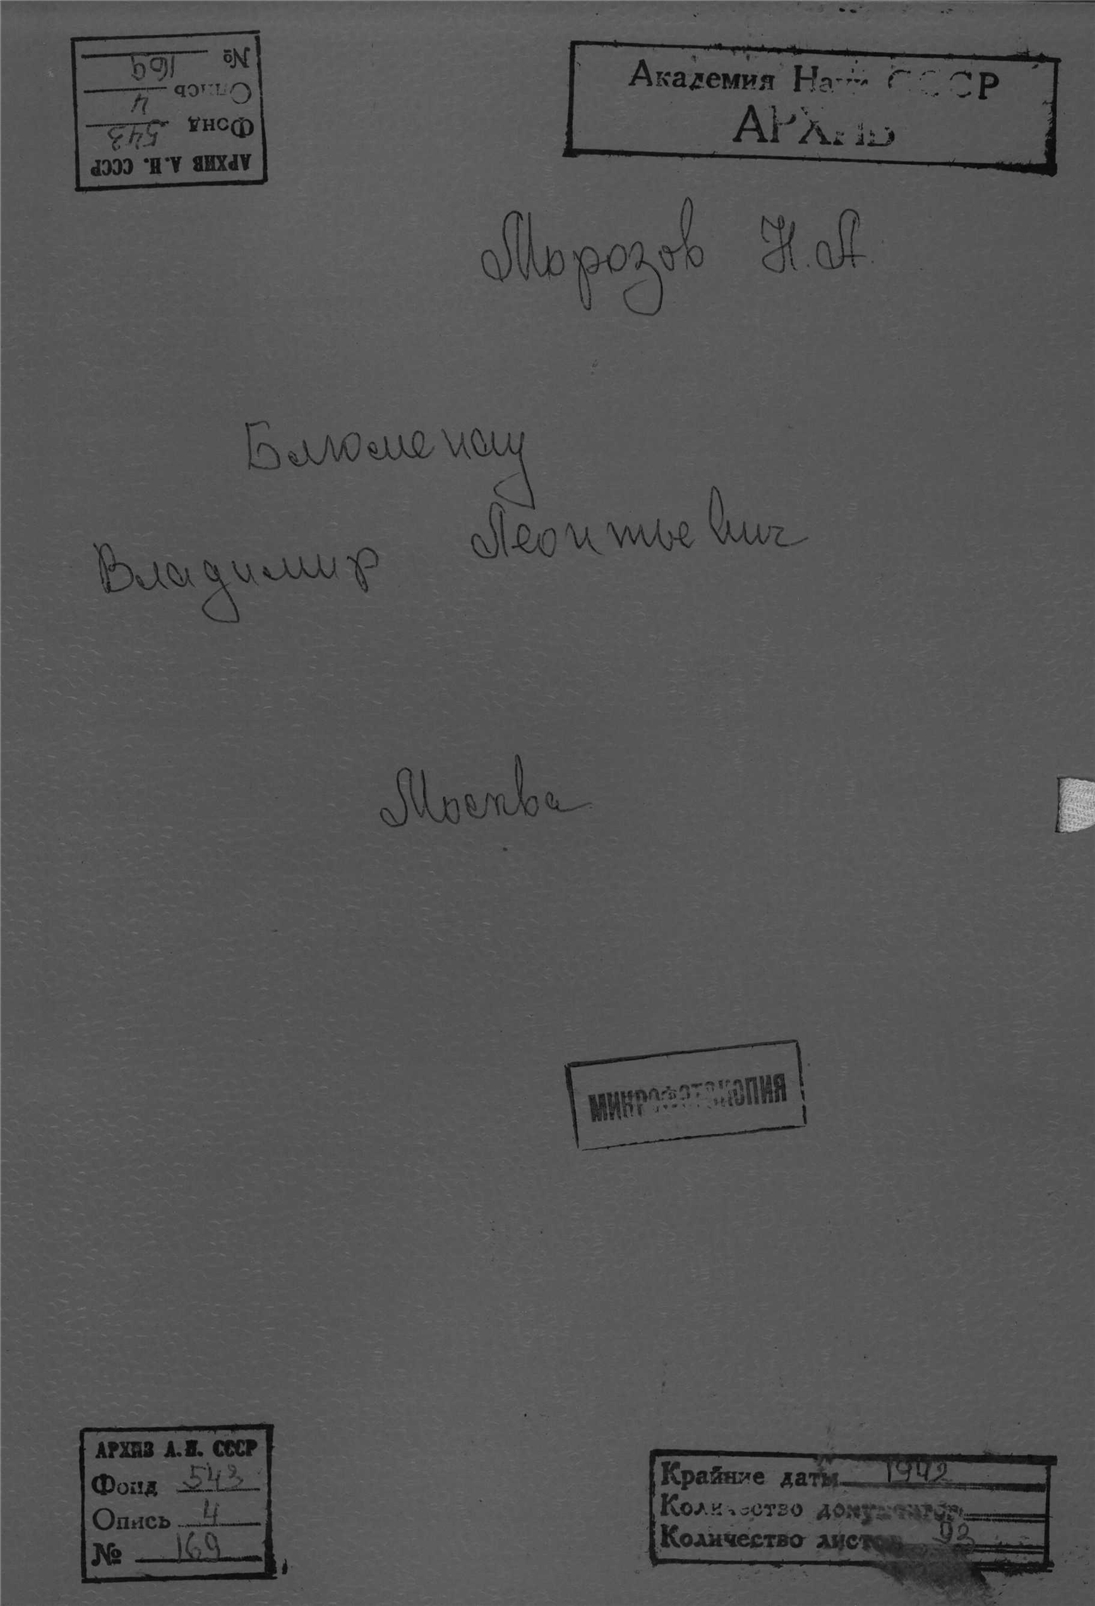 № 169
Опись 4
Фонд 543
АРХИВ А.Н. СССР
Академия Наук СССР
АРХИВ
Морозов Н.А.
Блюменау
Владимир Леонтьевич
Москва
МИКРОФОТОКОПИЯ
АРХИВ А.Н. СССР
Фонд 543
Опись 4
№ 169
Крайние даты 1942
Количество документов
Количество листов 93